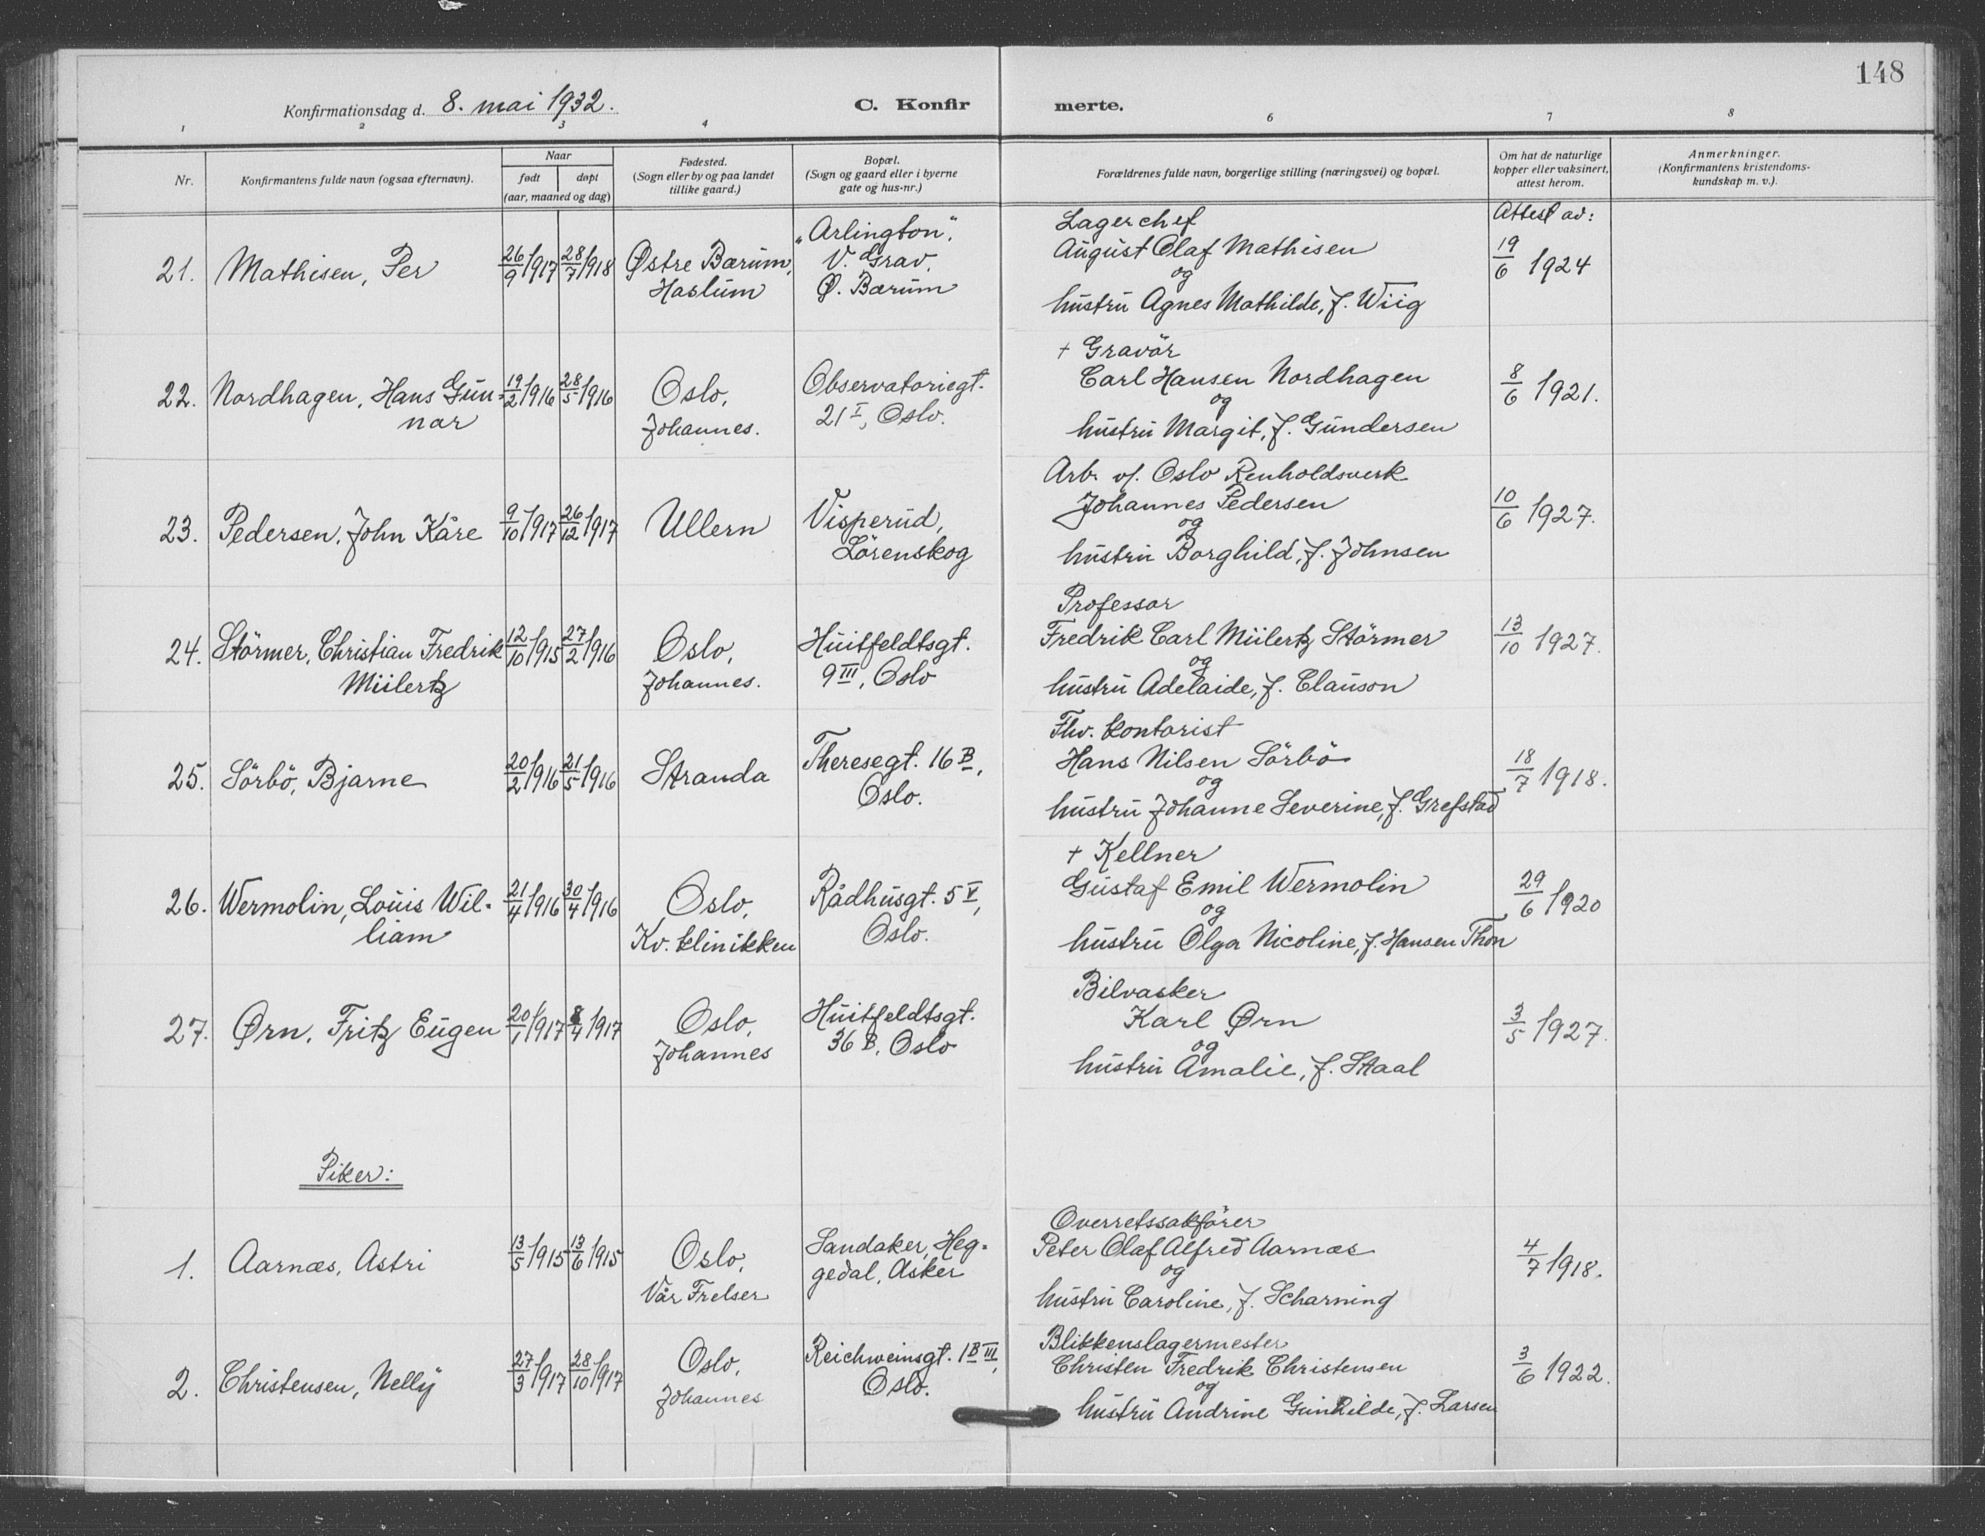 148
Konfirmationsdag d. 8. mai 1932.
C. Konfir merte.
1 2 3 4 6 7 8
Nr.
Konfirmantens fulde navn (ogsaa efternavn).
Naar
født døpt
(aar, maaned og dag)
Fødested.
(Sogn eller by og paa landet
tillike gaard.)
Bopæl.
(Sogn og gaard eller i byerne
gate og hus-nr.)
Forældrenes fulde navn, borgerlige stilling (næringsvei) og bopæl.
Om hat de naturlige
kopper eller vaksinert,
attest herom.
Anmerkninger.
(Konfirmantens kristendoms-
kundskap m. v.).
21. Mathisen, Per
26/9 1917 28/7 1918
Østre Bærum,
Haslum
"Arlington",
V. Grav,
Ø. Bærum
Lagerchef
August Olaf Mathisen
og
hustru Agnes Mathilde, f. Wiig
Attest av:
19/6 1924
22. Nordhagen, Hans Gun-
nar
19/2 1916 28/5 1916
Oslo,
Johannes.
Observatoriegt.
21 I, Oslo.
+ Gravör
Carl Hansen Nordhagen
og
hustru Margit, f. Gundersen
8/6 1921.
23. Pedersen, John Kåre
9/10 1917 26/12 1917
Ullern
Visperud,
Lörenskog
Arb. v/. Oslo Renholdsverk
Johannes Pedersen
og
hustru Borghild, f. Johnsen
10/6 1927.
24. Störmer, Christian Fredrik
Mülertz
12/10 1915 27/2 1916
Oslo,
Johannes.
Huitfeldtsgt.
9 III, Oslo
Professor
Fredrik Carl Mülertz Störmer
og
hustru Adelaide, f. Clauson
13/10 1927.
25. Sörbö, Bjarne
20/2 1916 21/5 1916
Stranda
Theresegt. 16 B,
Oslo.
Fhv. kontorist
Hans Nilsen Sörbö
og
hustru Johanne Severine, f. Grefstad
18/7 1918.
26. Wermolin, Louis Wil-
liam
21/4 1916 30/4 1916
Oslo,
Kv. klinikken
Rådhusgt. 5 V,
Oslo.
+ Kellner
Gustaf Emil Wermolin
og
hustru Olga Nicoline, f. Hansen Thon
29/6 1920
27. Ørn, Fritz Eugen
20/1 1917 8/4 1917
Oslo,
Johannes
Huitfeldtsgt.
36 B, Oslo
Bilvasker
Karl Ørn
og
hustru Amalie, f. Staal
3/5 1927.
Piker:
1. Aarnæs, Astri
13/5 1915 13/6 1915
Oslo,
Vår Frelser
Sandaker, Heg-
gedal, Asker
Overretssakförer
Peter Olaf Alfred Aarnæs
og
hustru Caroline, f. Scharning
4/7 1918.
2. Christensen, Nelly
27/3 1917 28/10 1917
Oslo,
Johannes
Reichweinsgt. 1 B III,
Oslo.
Blikkenslagermester
Christen Fredrik Christensen
og
hustru Andrine Gunhilde, f. Larsen
3/6 1922.